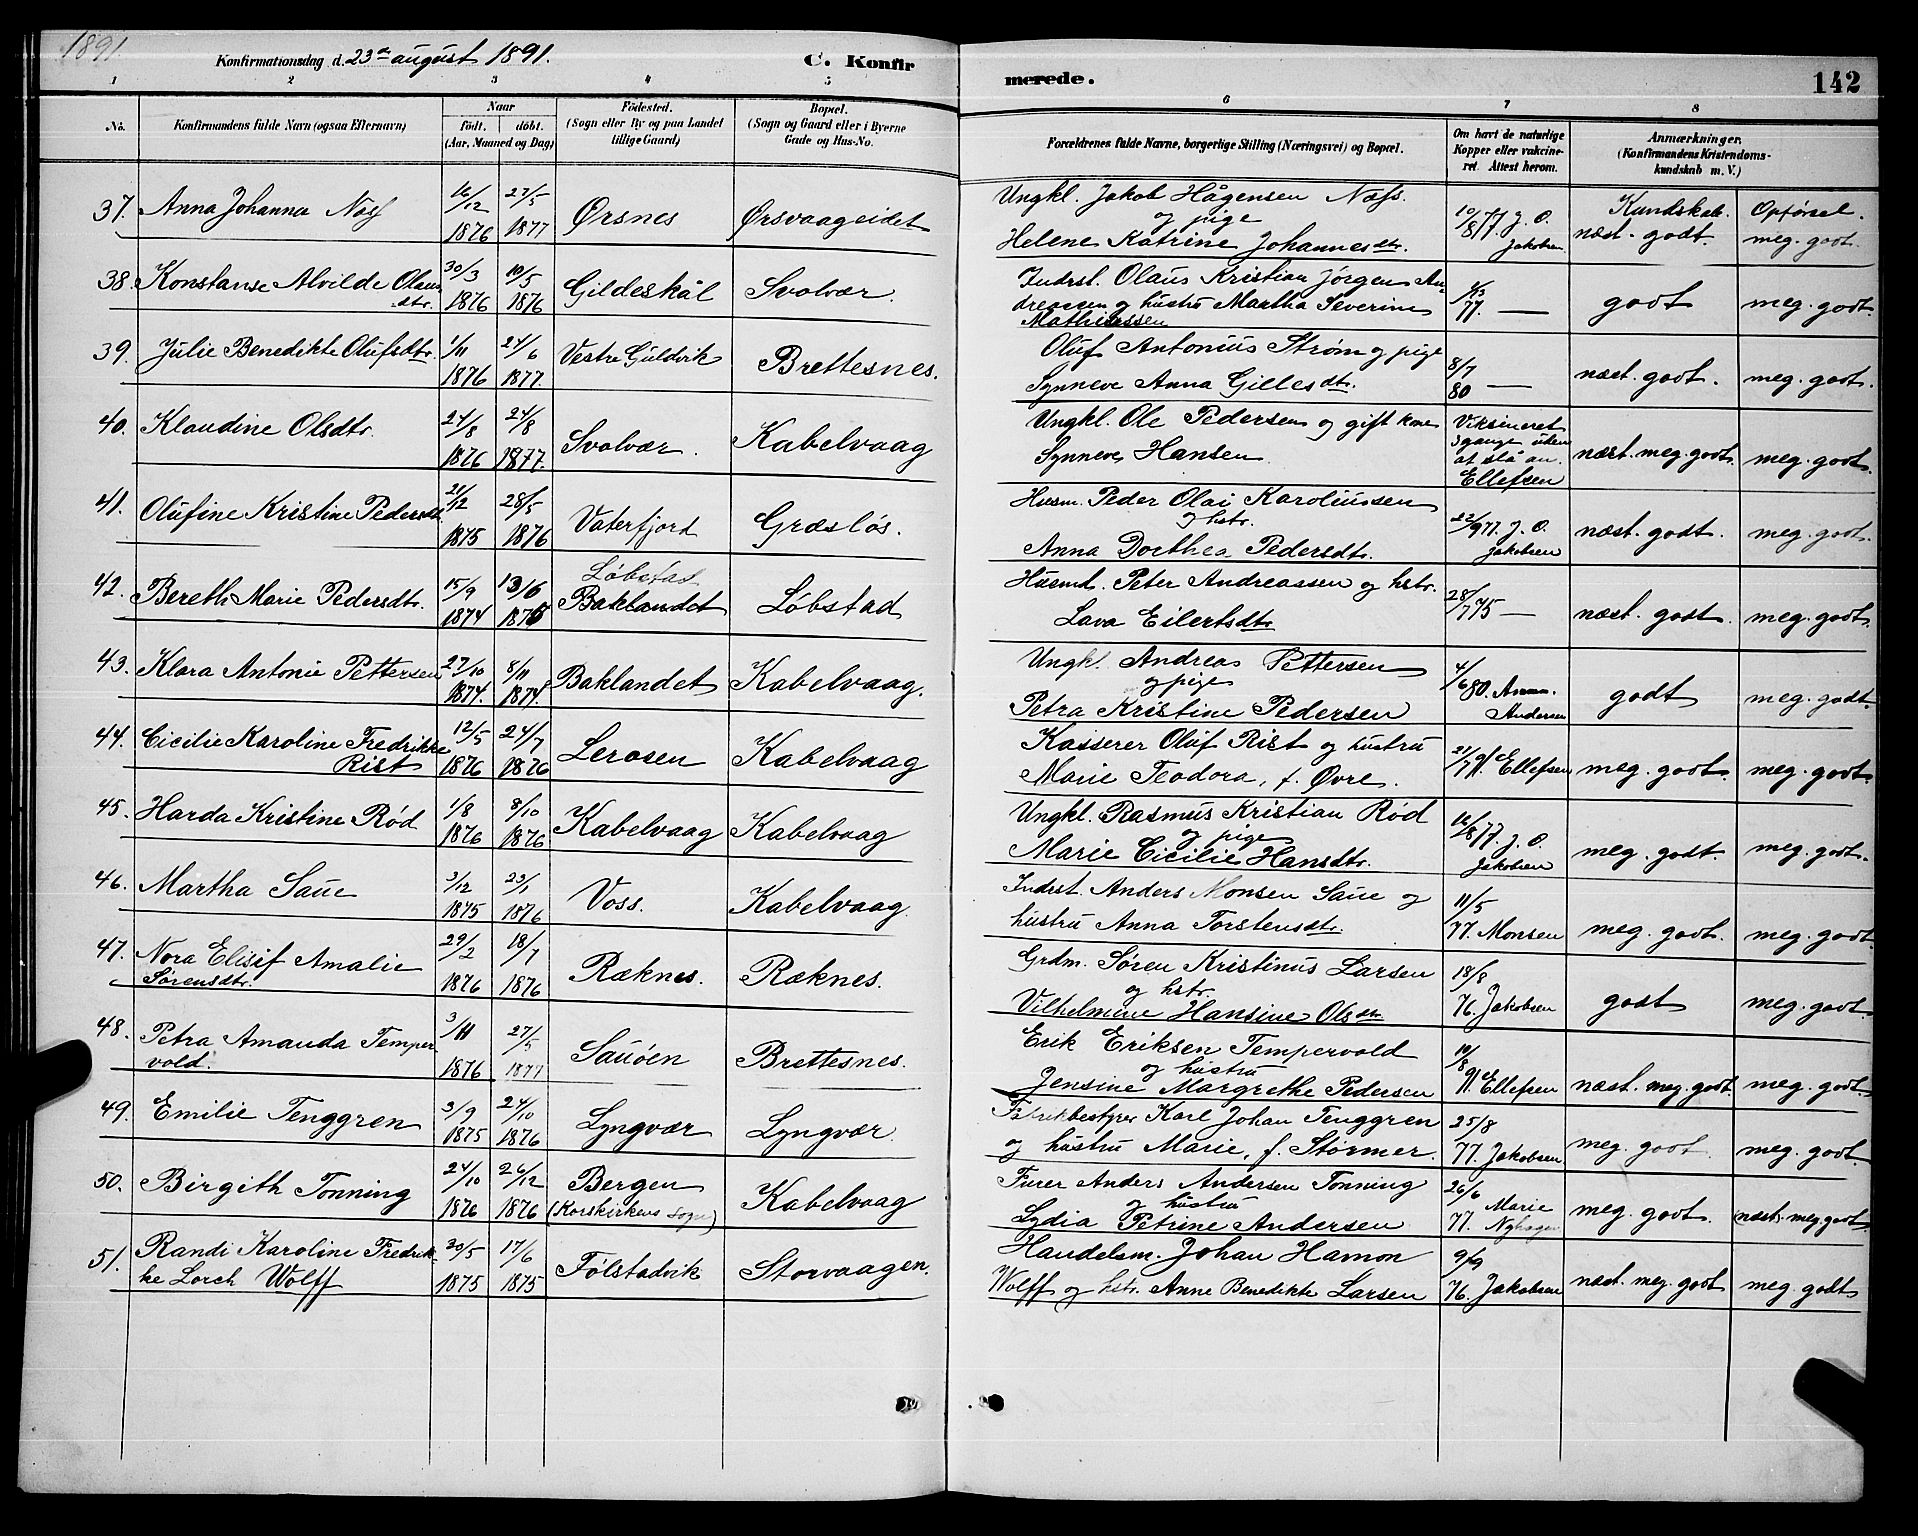 1891.
Konfirmationsdag d. 23de august 1891. C. Konfir
1 2 3 4 5
No. Konfirmandens fulde Navn (ogsaa Efternavn) Naar født. døbt. (Aar, Maaned og Dag) Fødested. (Sogn eller By og paa Landet tillige Gaard) Bopæl. (Sogn og Gaard eller i Byerne Gade og Hus-No.
37. Anna Johanna Næss 16/12 1876 27/5 1877 Ørsnes Ørsvaageidet
38. Konstanse Alvilde Olausdtr. 30/3 1876 10/5 1876 Gildeskål Svolvær.
39. Julie Benedikte Olufsdtr. 1/11 1876 24/6 1877. Vestre Guldvik Brettesnes.
40. Klaudine Olsdtr. 24/8 1876 24/8 1877. Svolvær. Kabelvaag
41. Olufine Kristine Pedersdt. 21/12 1875 28/5 1876 Vaterfjord Græsløs.
42. Bereth Marie Pedersdtr. 15/9 1874 13/6 1875 Løbstad Baklandet Løbstad
43. Klara Antonie Pettersen 27/10 1874. 8/11 1874. Baklandet Kabelvaag.
44. Cicilie Karoline Fredrikke Rist 12/5 1876 24/7 1876 Lerosen Kabelvaag
45. Harda Kristine Rød 1/8 1876 8/10 1876 Kabelvaag Kabelvaag
46. Martha Saue 3/12 1875 23/1 1876 Voss. Kabelvaag.
47. Nora Elisif Amalie Sørensdtr. 29/2 1876 18/7 1876 Ræknes. Ræknes.
48. Petra Amanda Tempervold. 3/11 1876 27/5 1877 Sauøen Brettesnes.
49. Emilie Tenggren 3/9 1875 24/10 1876 Lyngvær Lyngvær.
50. Birgith Tonning 24/10 1876 26/12 1876 Bergen (Korskirkens Sogn) Kabelvaag
51. Randi Karoline Fredrikke Lorch Wolff 30/5 1875 17/6 1875 Følstadvik Storvaagen.
merede. 142
6 7 8
Forældrenes fulde Navne, borgerlige Stilling (Næringsvei) og Bopæl. Om havt de naturlige Kopper eller vakcineret. Attest herom. Anmærkninger. (Konfirmandens Kristendomskundskab m. V.)
Ungkl. Jakob Hågensen Næss. og pige Helene Katrine Johannesdtr. 10/8 77. J. O. Jakobsen Kundskab. næst. godt. Opførsel. meg. godt.
Indrst. Olaus Kristian Jørgen Andreassen og hustru Martha Severine Mathisessen 77. — godt meg. godt.
Oluf Antonius Strøm og pige Synneve Anna Gillesdtr. 8/7 80 — næst. godt. meg. godt.
Ungkl. Ole Pedersen og gift kone Synneve Hansen. Viksineret 3 gange uden at slå an. Ellefsen næst. meg. godt. meg. godt.
Husm. Peder Olai Karoliussen og hstr. Anna Dorthea Pedersdtr. 22/9 77. J. O. Jakobsen næst. godt. meg. godt.
Husmd. Peter Andreassen og hstr. Lava Eilertsdtr 28/7 75 — næst. godt. meg. godt.
Ungkl. Andreas Pettersen og pige Petra Kristine Pedersen 4/6 80. Andersen godt meg. godt.
Kasserer Oluf Rist og hustru Marie Teodora, f. Øvre. 21/7 91. Ellefsen meg. godt. meg. godt.
Ungkl. Rasmus Kristian Rød og pige Marie Cicilie Hansdtr. 16/8 77. J. O. Jakobsen meg. godt. meg. godt.
Indrst. Anders Monsen Saue og hustru Anna Torstensdtr. 11/5 77. Monsen meg. godt. meg. godt.
Grdm. Søren Kristinus Larsen og hstr. Vilhelmine Hansine Olsdtr 18/8 76. Jakobsen godt meg. godt.
Erik Eriksen Tempervold og hustru Jensine Margrethe Pedersen 10/8 91. Ellefsen næst. meg. godt meg. godt.
Fabrikbestyrer Karl Johan Tenggren og hustru Marie, f. Størmer. 25/8 77. Jakobsen meg. godt. meg. godt.
Furer Anders Andersen Tonning og hustru Lydia Petrine Andersen 26/6 77. Marie meg. godt. næst. meg. godt
Handelsm. Johan Hamon Wolff og hstr. Anne Benedikte Larsen 9/9 76. Jakobsen næst. meg. godt meg. godt